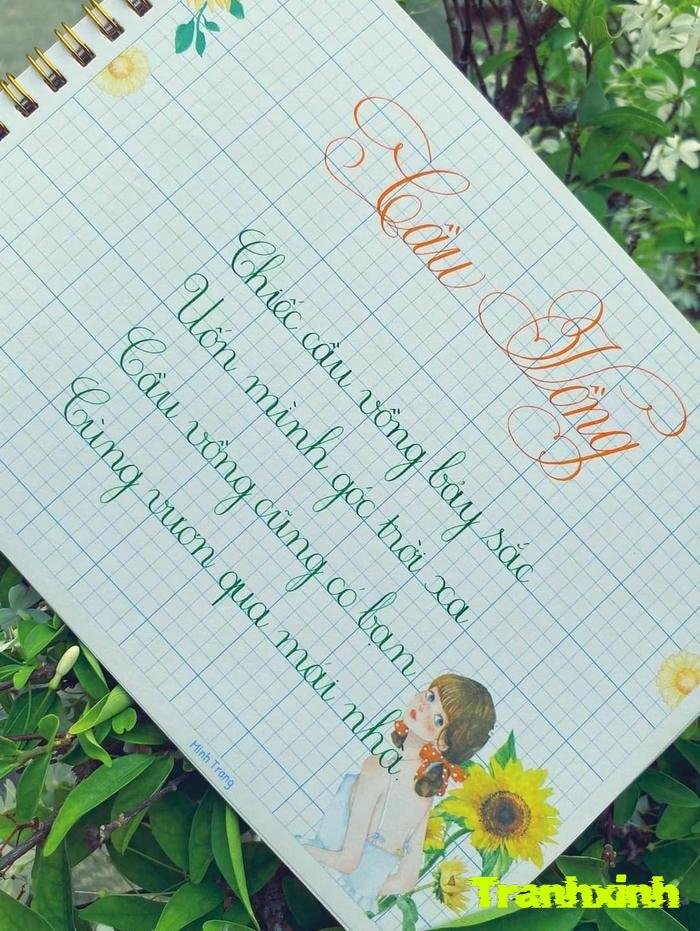 Cầu Vồng
Chiếc cầu vồng bảy sắc
Uốn mình góc trời xa
Cầu vồng cũng có bạn
Cùng vươn qua mái nhà
Minh Trang
Tranhxinh